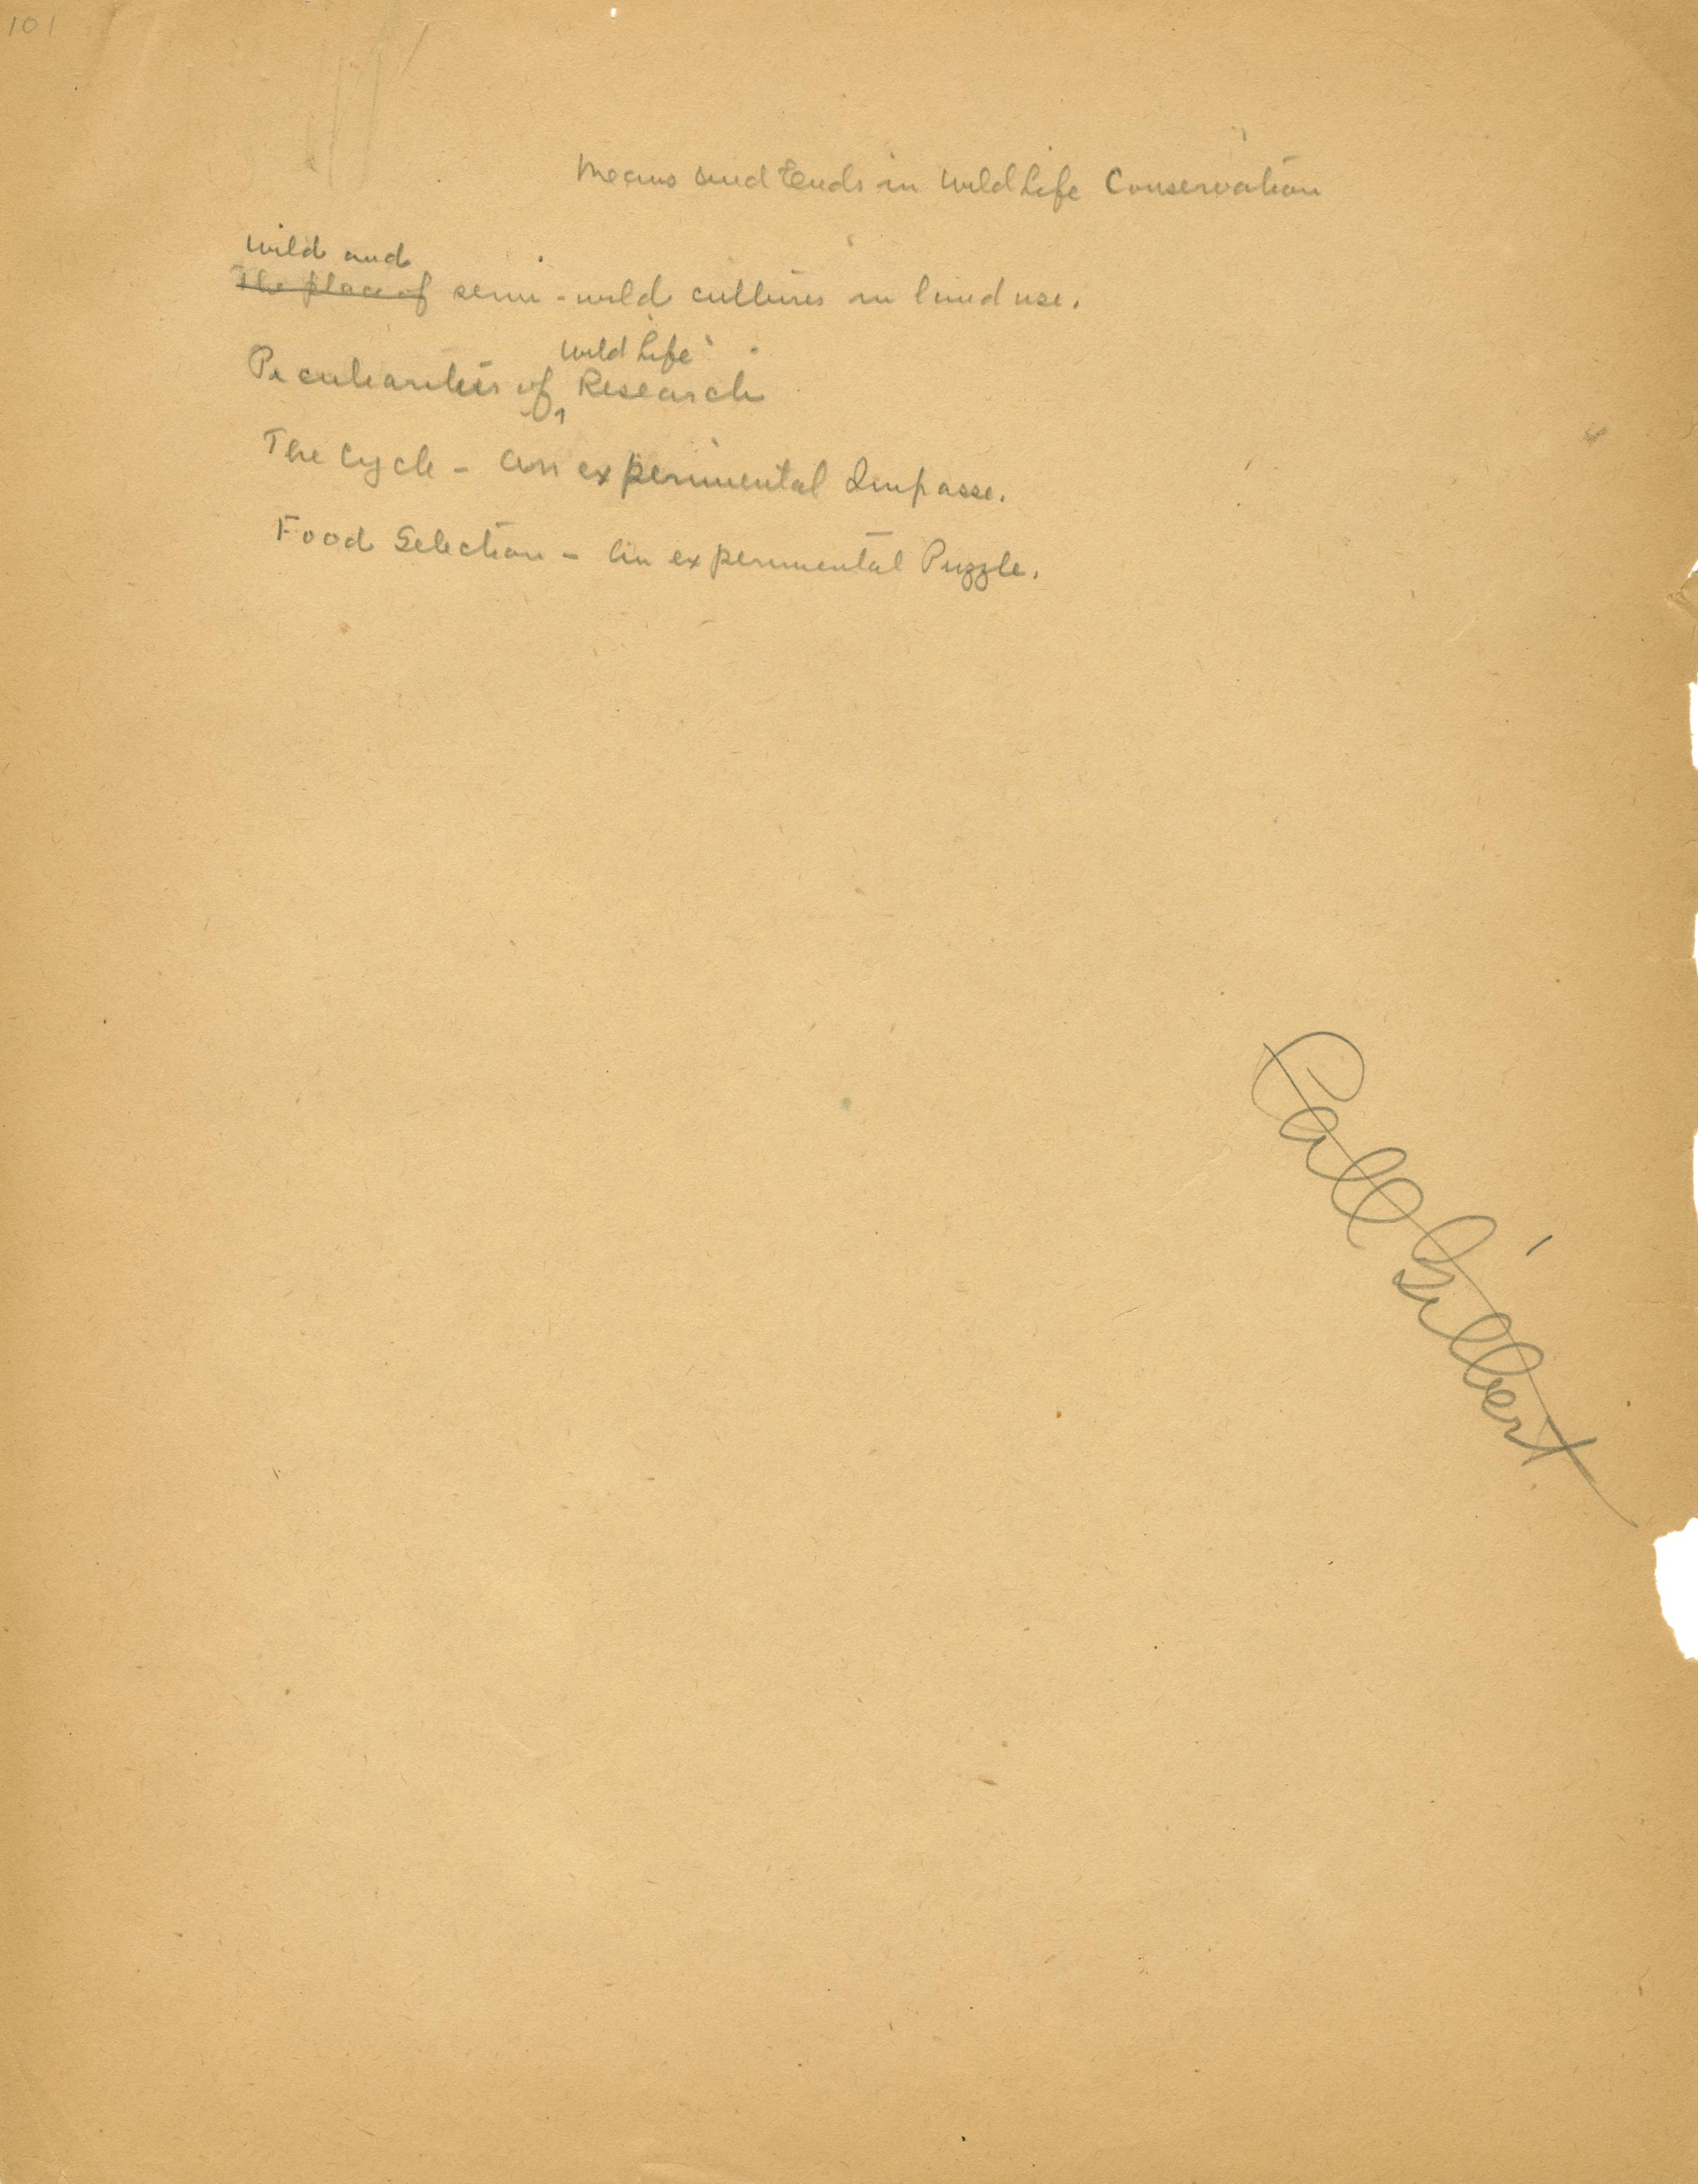 101
Means and Ends in Wild Life Conservation
Wild and
The place of semi-wild cultures in land use.
Wild Life
Peculiarities of Research
The Cycle - An experimental Impasse.
Food Selection - An experimental Puzzle.
Call Gilbert